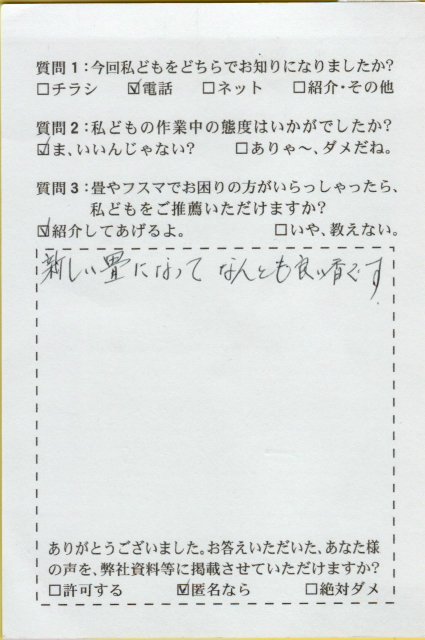 質問1：今回私どもをどちらでお知りになりましたか?
□チラシ ☑電話 □ネット □紹介・その他
質問2：私どもの作業中の態度はいかがでしたか?
☑ま、いいんじゃない? □ありゃ～、ダメだね。
質問3：畳やフスマでお困りの方がいらっしゃったら、
私どもをご推薦いただけますか?
☑紹介してあげるよ。 □いや、教えない。
新しい畳になって なんとも良い香です.
ありがとうございました。お答えいただいた、あなた様
の声を、弊社資料等に掲載させていただけますか?
□許可する ☑匿名なら □絶対ダメ